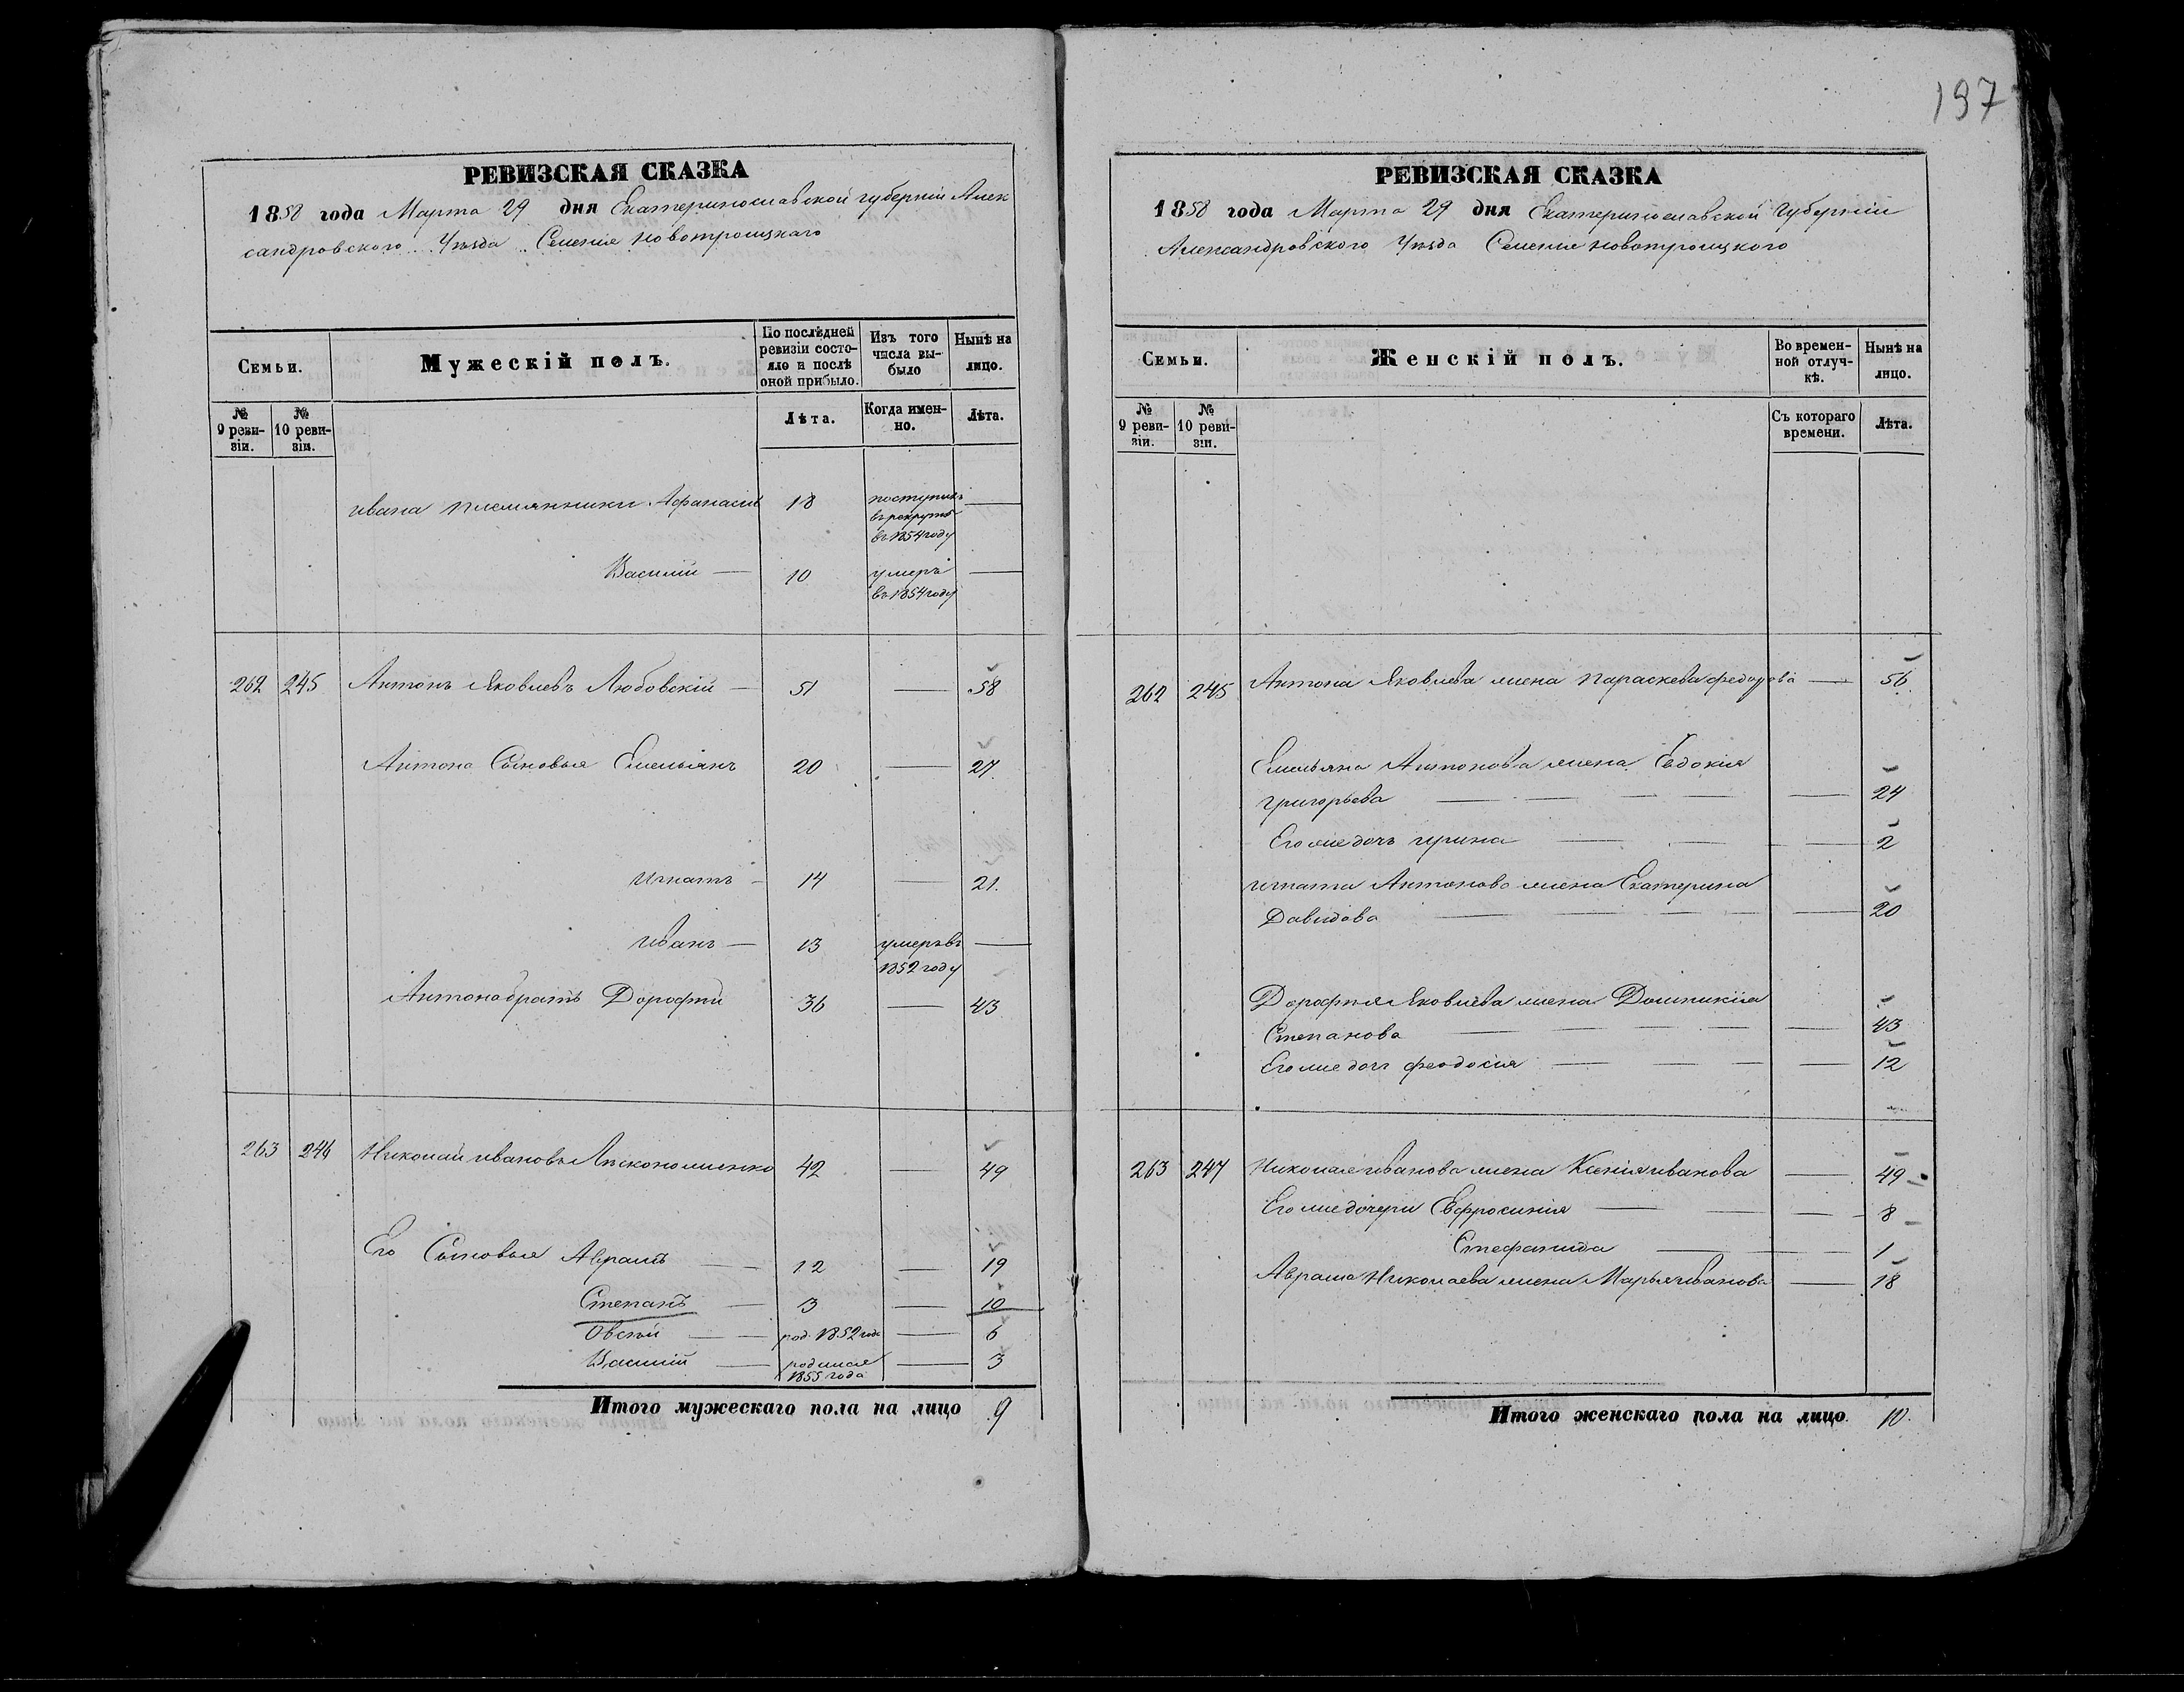 197
РЕВИЗСКАЯ СКАЗКА
1858 года Марта 29 дня Екатеринославской губерніи Алек
сандровского Уѣзда Селенія Новотроицкаго
Семьи.
Мужескій полъ.
По послѣдней ревизіи состояло и послѣ оной прибыло.
Изъ того числа выбыло
Нынѣ на лицо.
№ 9 ревизіи.
№ 10 ревизіи.
Лѣта.
Когда именно.
Лѣта.
ивана племянники Афанасій 18 поступилъ —
въ рекруты
въ 1854 году
Василій — 10 умеръ —
въ 1854 году
262 245 Антонъ Яковлевъ Любовскій — 51 — 58
Антона Сыновья Емельянъ 20 — 27
игнатъ — 14 — 21.
иванъ — 13 умеръ въ —
1852 году
Антона братъ Дорофей 36 — 43
263 246 Николай ивановъ 42 — 49
Его Сыновья Аврамъ — 12 — 19
Степанъ — 3 — 10
Овсѣй — род. 1852 года — 6
Василій — родился — 3
1855 года
Итого мужескаго пола на лицо 9
РЕВИЗСКАЯ СКАЗКА
1858 года Марта 29 дня Екатеринославской Губерніи
Александровского Уѣзда Селенія Новотроицкого
Семьи.
Женскій полъ.
Во временной отлучкѣ.
Нынѣ на лицо.
№ 9 ревизіи.
№ 10 ревизіи.
Съ котораго времени.
Лѣта.
262 245 Антона Яковлева жена Параскева федорова — 56
Емельяна Антонова жена Евдокия
григорьева — 24
Его же дочь ирина — 2
игната Антонова жена Екатерина
Давидова — 20
Дорофея Яковлева жена Домникія
Степанова — 43
Его же дочь феодосія — 12
263 247 Николая иванова жена Ксенія иванова — 49
Его же дочери Евфросинія — 8
Стефанида — 1
Аврама Николаева жена Марья иванова — 18
Итого женскаго пола на лицо. 10.